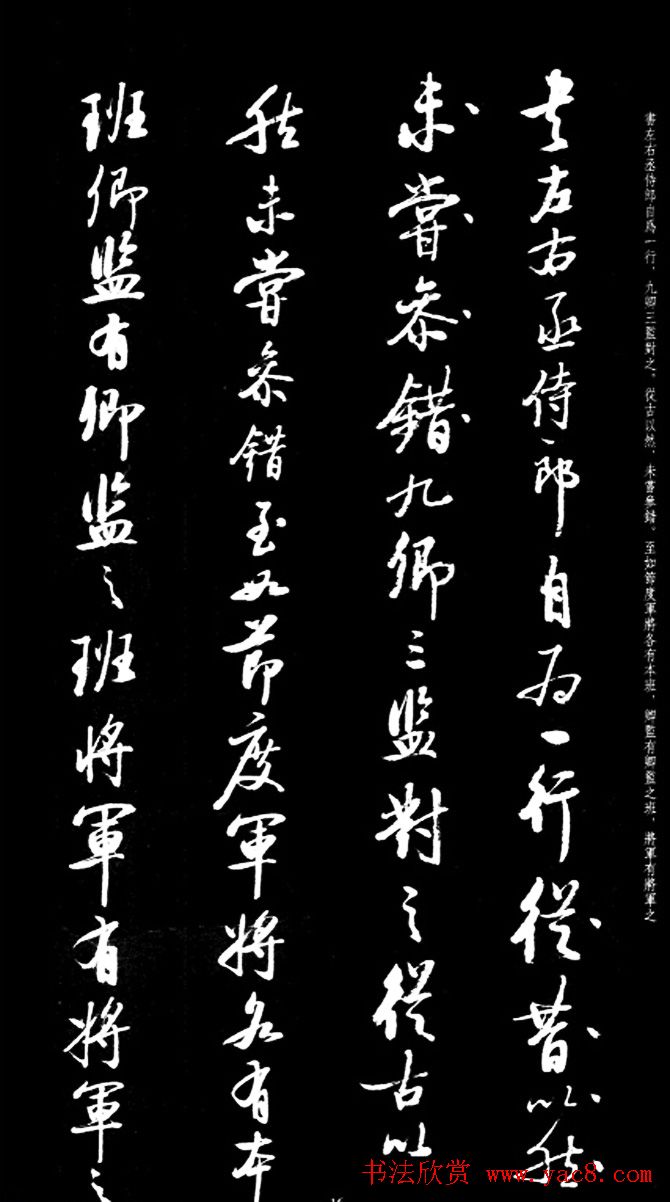 書左右丞侍郎自為一行，九卿三監對之，從古以然，未嘗參錯。至如節度軍將各有本班，卿監有卿監之班，將軍有將軍之
書左右丞侍郎自為一行從昔以然
未嘗參錯九卿三監對之從古以
然未嘗參錯至如節度軍將各有本
班卿監有卿監之班將軍有將軍之
书法欣赏 www.yac8.com